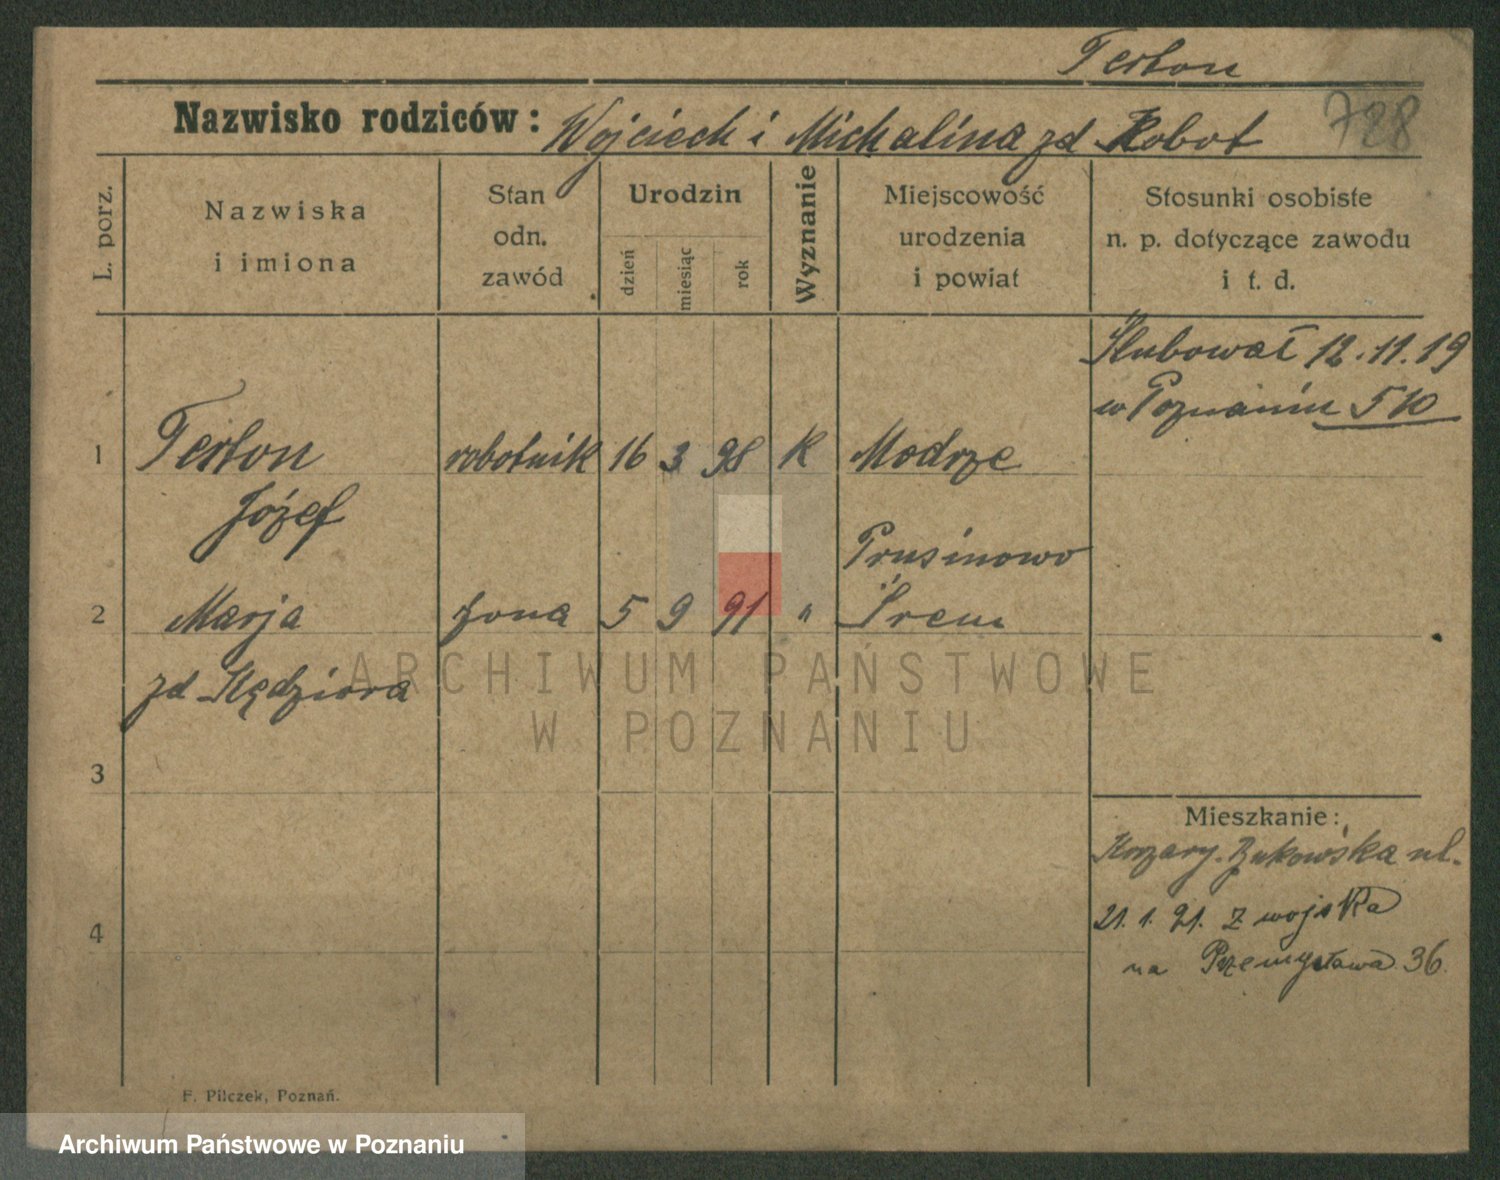 Terton
Nazwisko rodziców: Wojciech i Michalina zd Robot
728
L. porz.
Nazwiska
i imiona
Stan
odn.
zawód
Urodzin
dzień
miesiąc
rok
Wyznanie
Miejscowość
urodzenia
i powiat
Stosunki osobiste
n. p. dotyczące zawodu
i t. d.
Ślubował 12.11.19
w Poznaniu 510
1 Terton robotnik 16 3 98 K Modrze
Józef
Prusinowo
2 Marja żona 5 9 91 " Śrem
zd Kędziora
ARCHIWUM PAŃSTWOWE
W POZNANIU
3
Mieszkanie:
Koszary. Bukowska ul.
21. 1. 21. z wojska
4
na Przemysława 36.
F. Pilczek, Poznań.
Archiwum Państwowe w Poznaniu